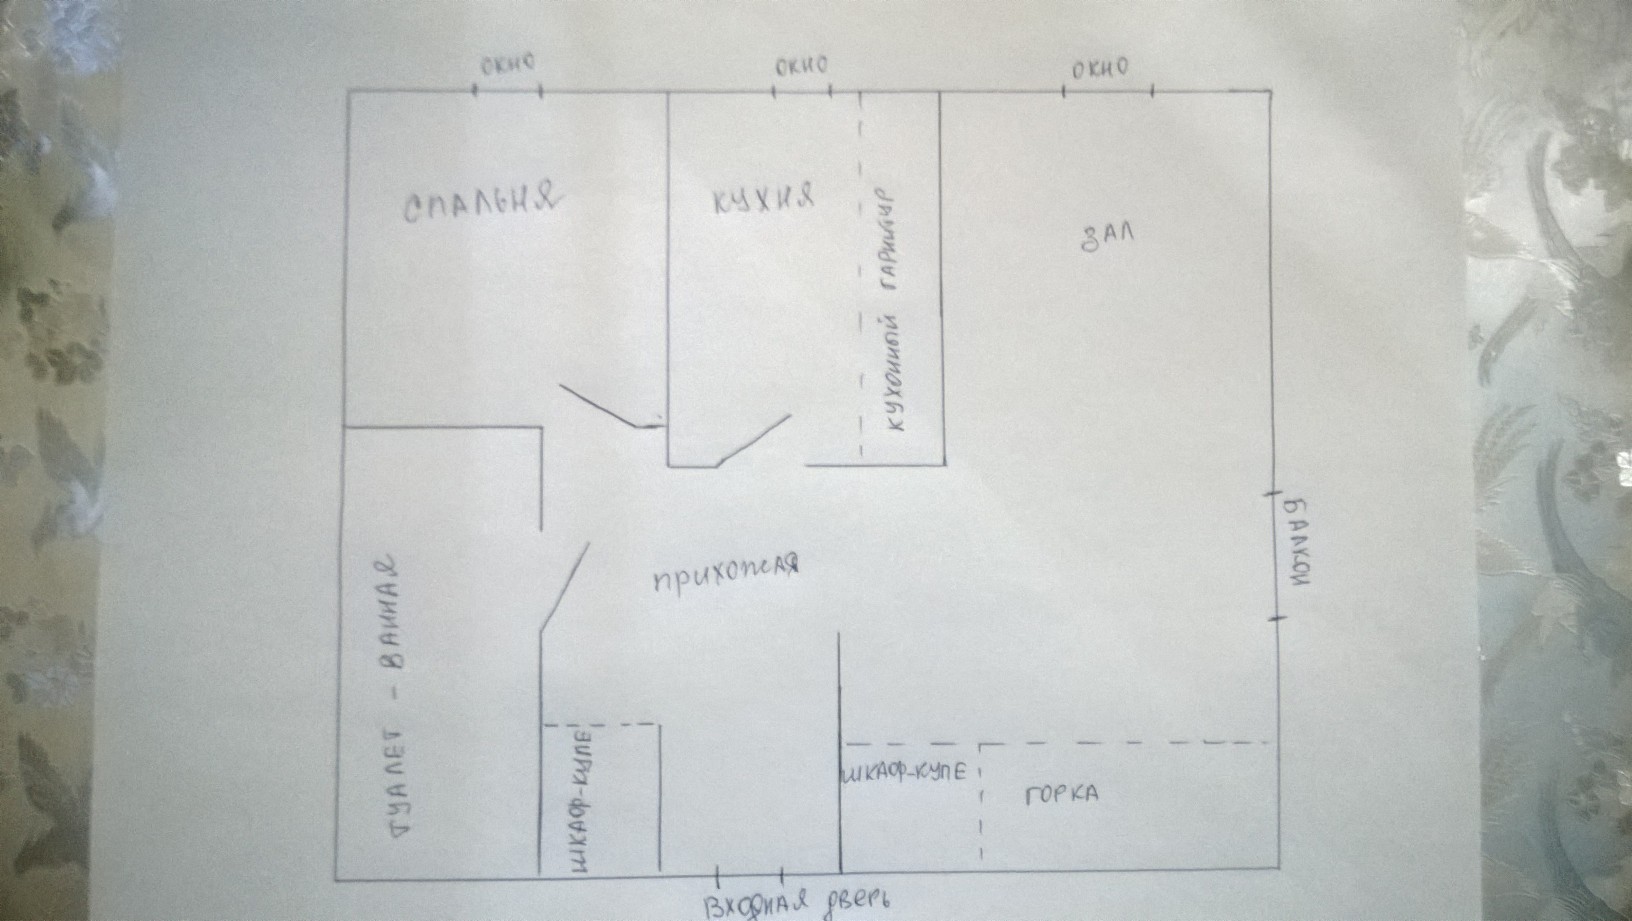 ОКНО
ОКНО
ОКНО
СПАЛЬНЯ
КУХНЯ
КУХОННЫЙ ГАРНИТУР
ЗАЛ
БАЛКОН
ПРИХОЖАЯ
ТУАЛЕТ - ВАННАЯ
ШКАФ-КУПЕ
ШКАФ-КУПЕ
ГОРКА
ВХОДНАЯ ДВЕРЬ